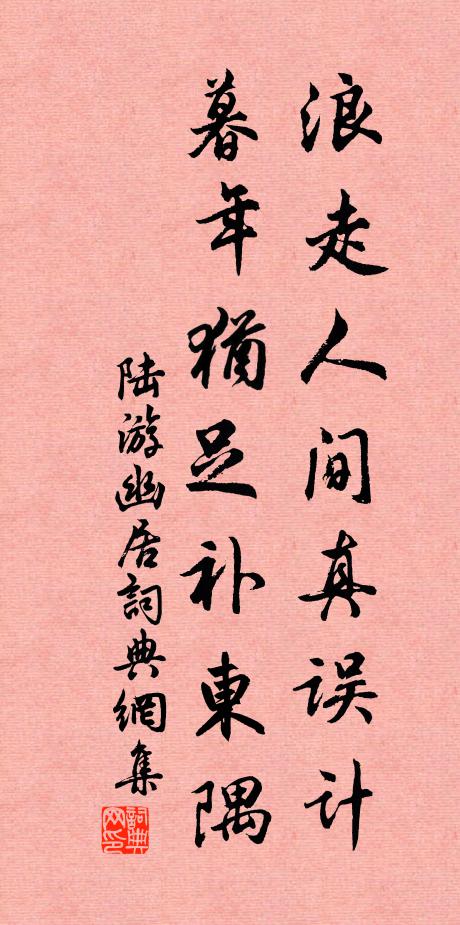 浪走人间真误计
暮年犹足补東隅
陆游幽居詞典網集
詞典网印